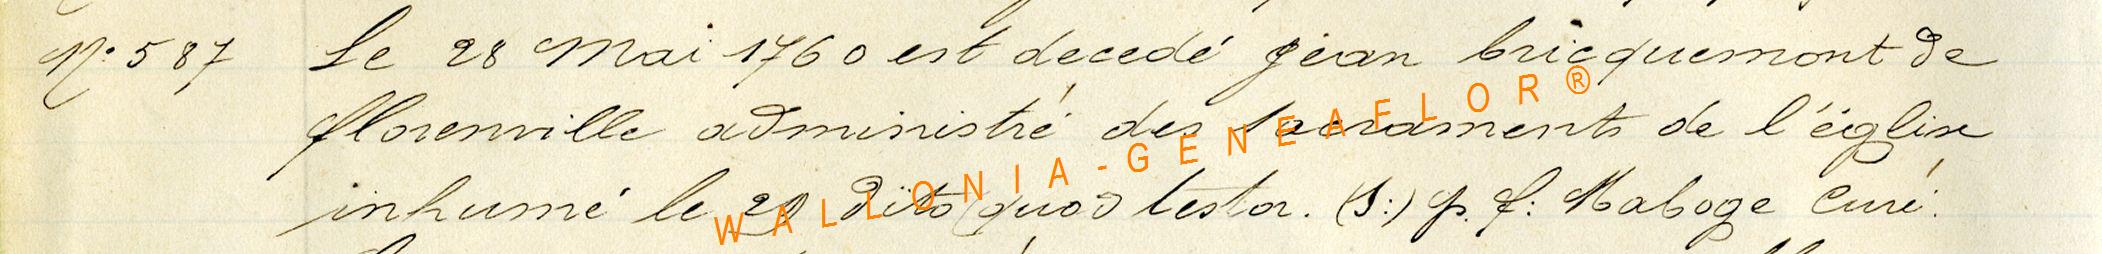 N° 587 Le 28 Mai 1760 est decedé jéan bricquemont de
florenville administré des sacraments de l'église
inhumé le 29 dito quod testor. (S:) p. f: Maboge Curé.
WALLONIA-GENEAFLOR®